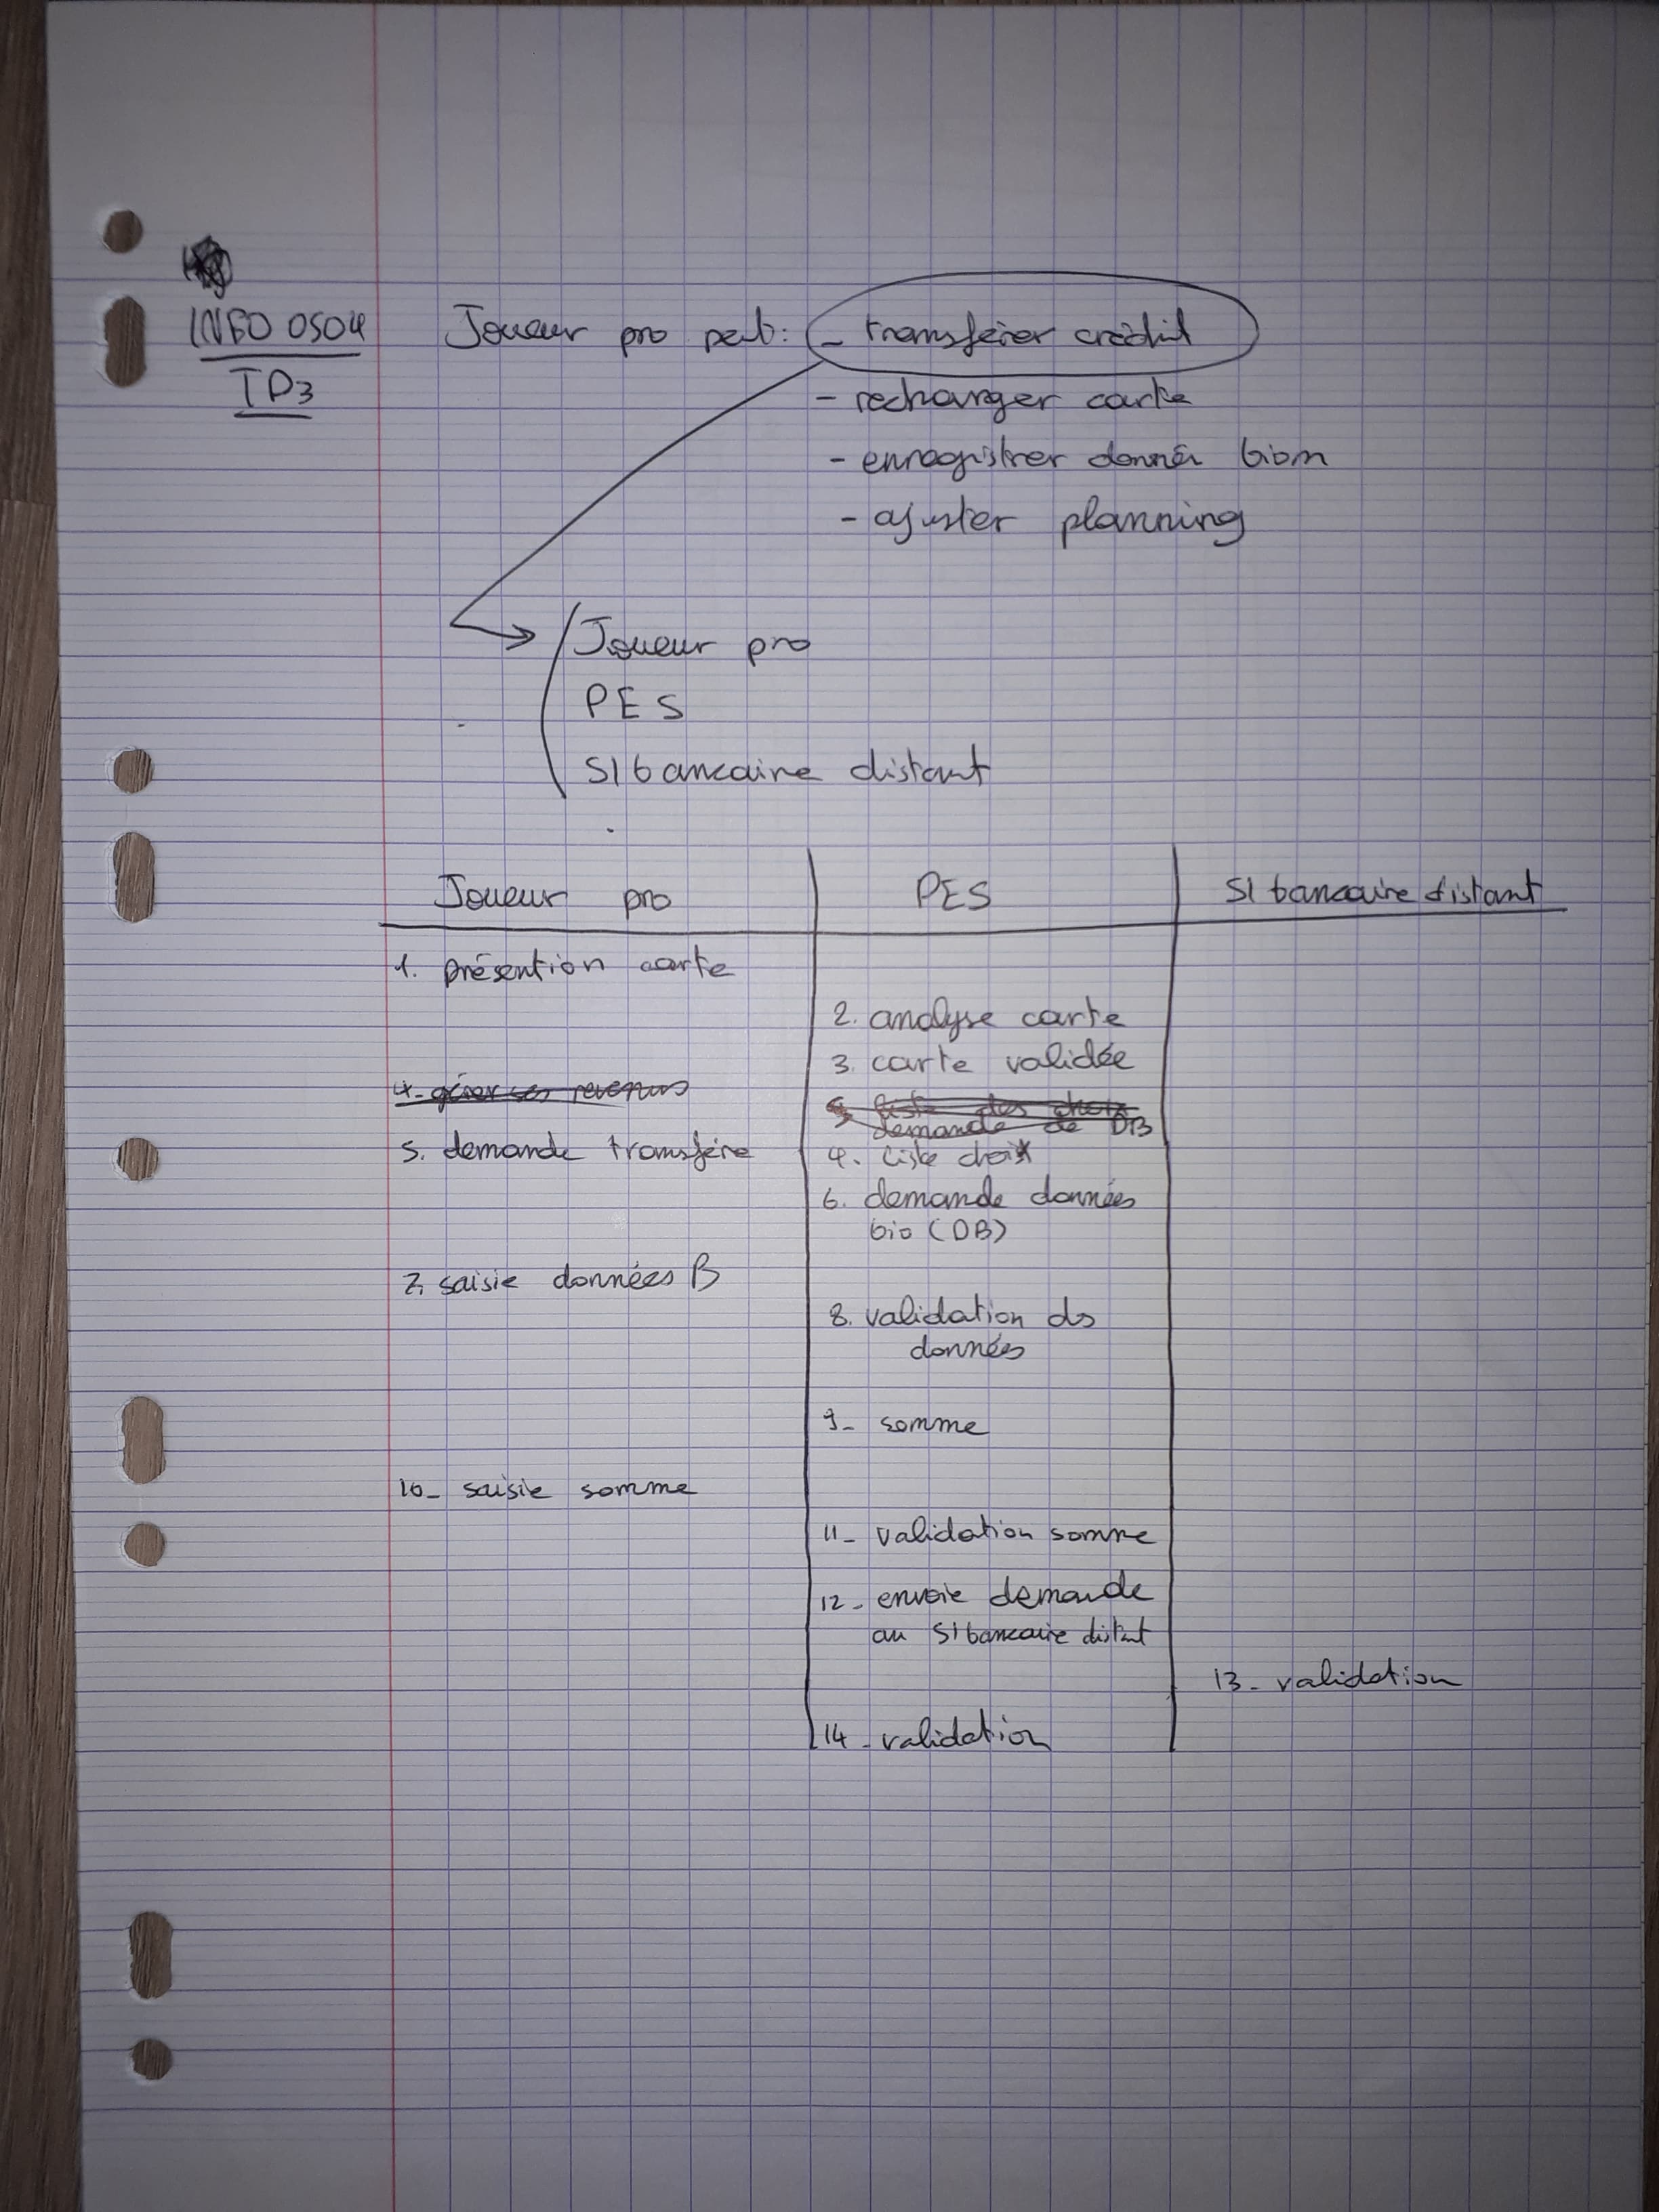 INFO 0504
TD3
Joueur pro peut: - transférer crédit
- recharger carte
- enregistrer donnée biom
- ajuster planning
Joueur pro
PES
SI bancaire distant
Joueur pro PES SI bancaire distant
1. présention carte
2. analyse carte
3. carte validée
4. gérer ses revenus
5. liste des choix
demande de DB
5. demande transfère
4. liste choix
6. demande données
bio (DB)
7. saisie données B
8. validation ds
données
9- somme
10- saisie somme
11- validation somme
12- envoie demande
au SI bancaire distant
13- validation
14- validation